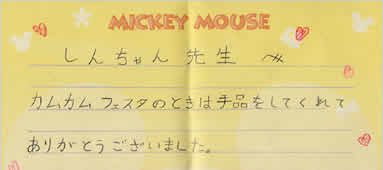 MICKEY MOUSE
しんちゃん先生へ
カムカムフェスタのときは手品をしてくれて
ありがとうございました。